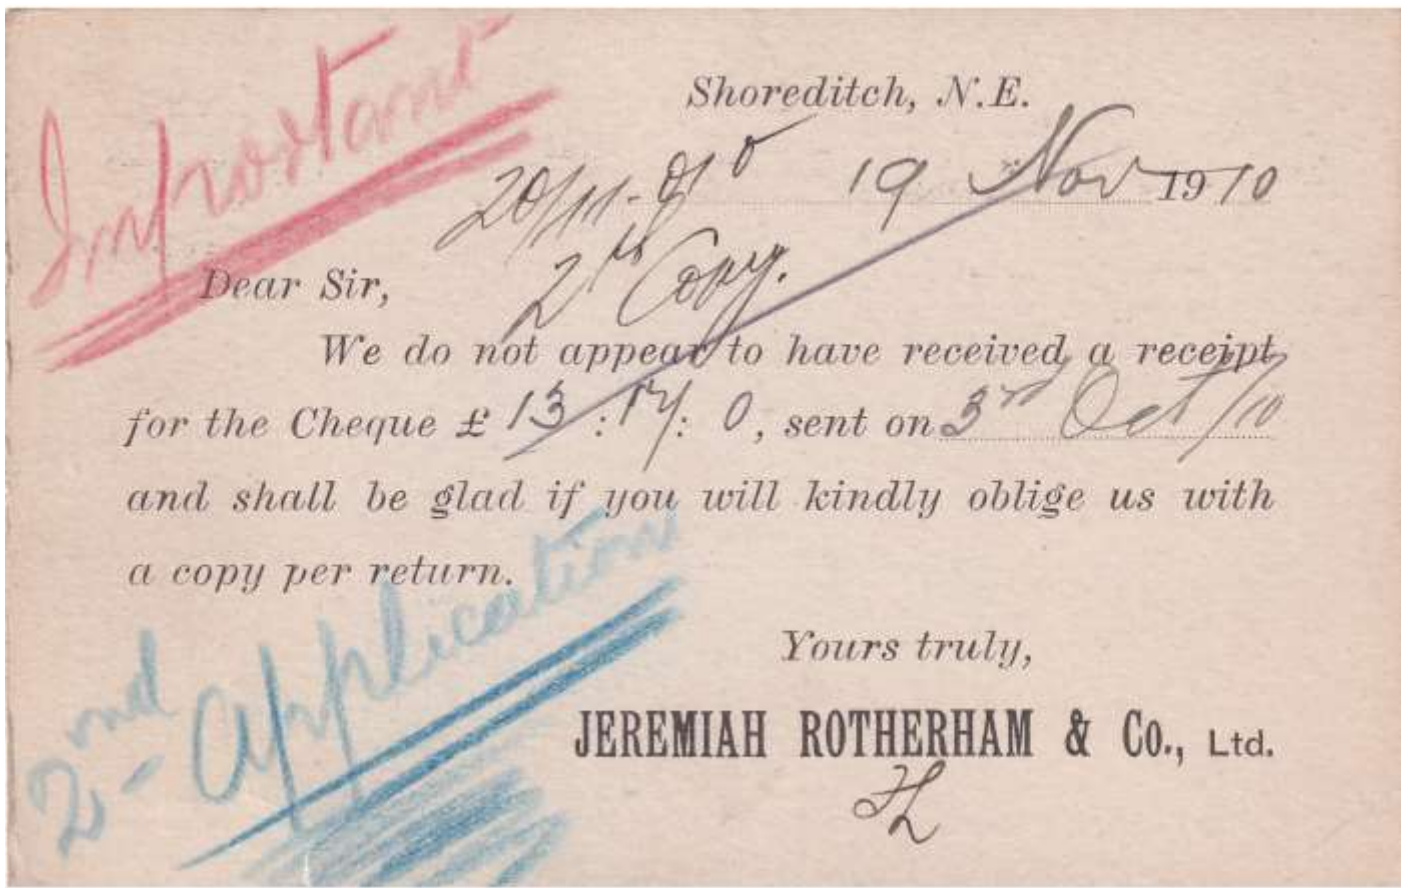 Important
Shoreditch, N.E.
19 Nov 1910
20/11
Copy.
Dear Sir,
We do not appear to have received a receipt
for the Cheque £ 13 : 17 : 0, sent on 3rd Oct/10
and shall be glad if you will kindly oblige us with
a copy per return.
2nd application
Yours truly,
JEREMIAH ROTHERHAM & Co., Ltd.